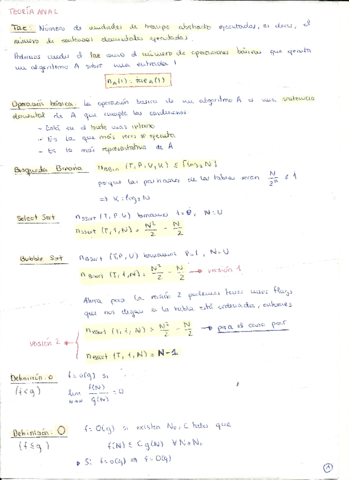 TEORÍA ANAL
Tae: Número de unidades de trabajo abstracto ejecutadas, es decir, el
número de sentencias elementales ejecutadas.
el tae como el número de operaciones básicas que ejecuta
un algoritmo A sobre una entrada I
n_A(I) = tae_A(I)
Operación básica: la operación básica de un algoritmo A es una sentencia
elemental de A que cumple las condiciones
- Está en el bucle más interno
- Es la que más veces se ejecuta
- Es la más representativa de A
Búsqueda Binaria
n_BBin (T,P,U,K) ≤ ⌈log₂N⌉
porque las particiones de las tablas serán N/2ᴷ ≤ 1
=> K = log₂N
Select Sort
n_SSort (T,P,U) tomamos 1=P, N=U
n_SSort (T,1,N) = N²/2 - N/2
Bubble Sort
n_BSort (T,P,U) tomamos P=1, N=U
n_BSort (T,1,N) = N²/2 - N/2 → versión 1
Ahora para la versión 2 podemos tener unos flags
que nos digan si la tabla está ordenada, entonces
versión 2
n_BSort (T,1,N) = N²/2 - N/2 → para el caso peor
n_BSort (T,1,N) = N-1
Definición: o
(f < g)
f = o(g) si
lim f(N)/g(N) = 0
Definición: O
(f ≤ g)
f = O(g) si existen N₀, C tales que
f(N) ≤ C·g(N) ∀N>N₀
Si f=o(g) => f=O(g)